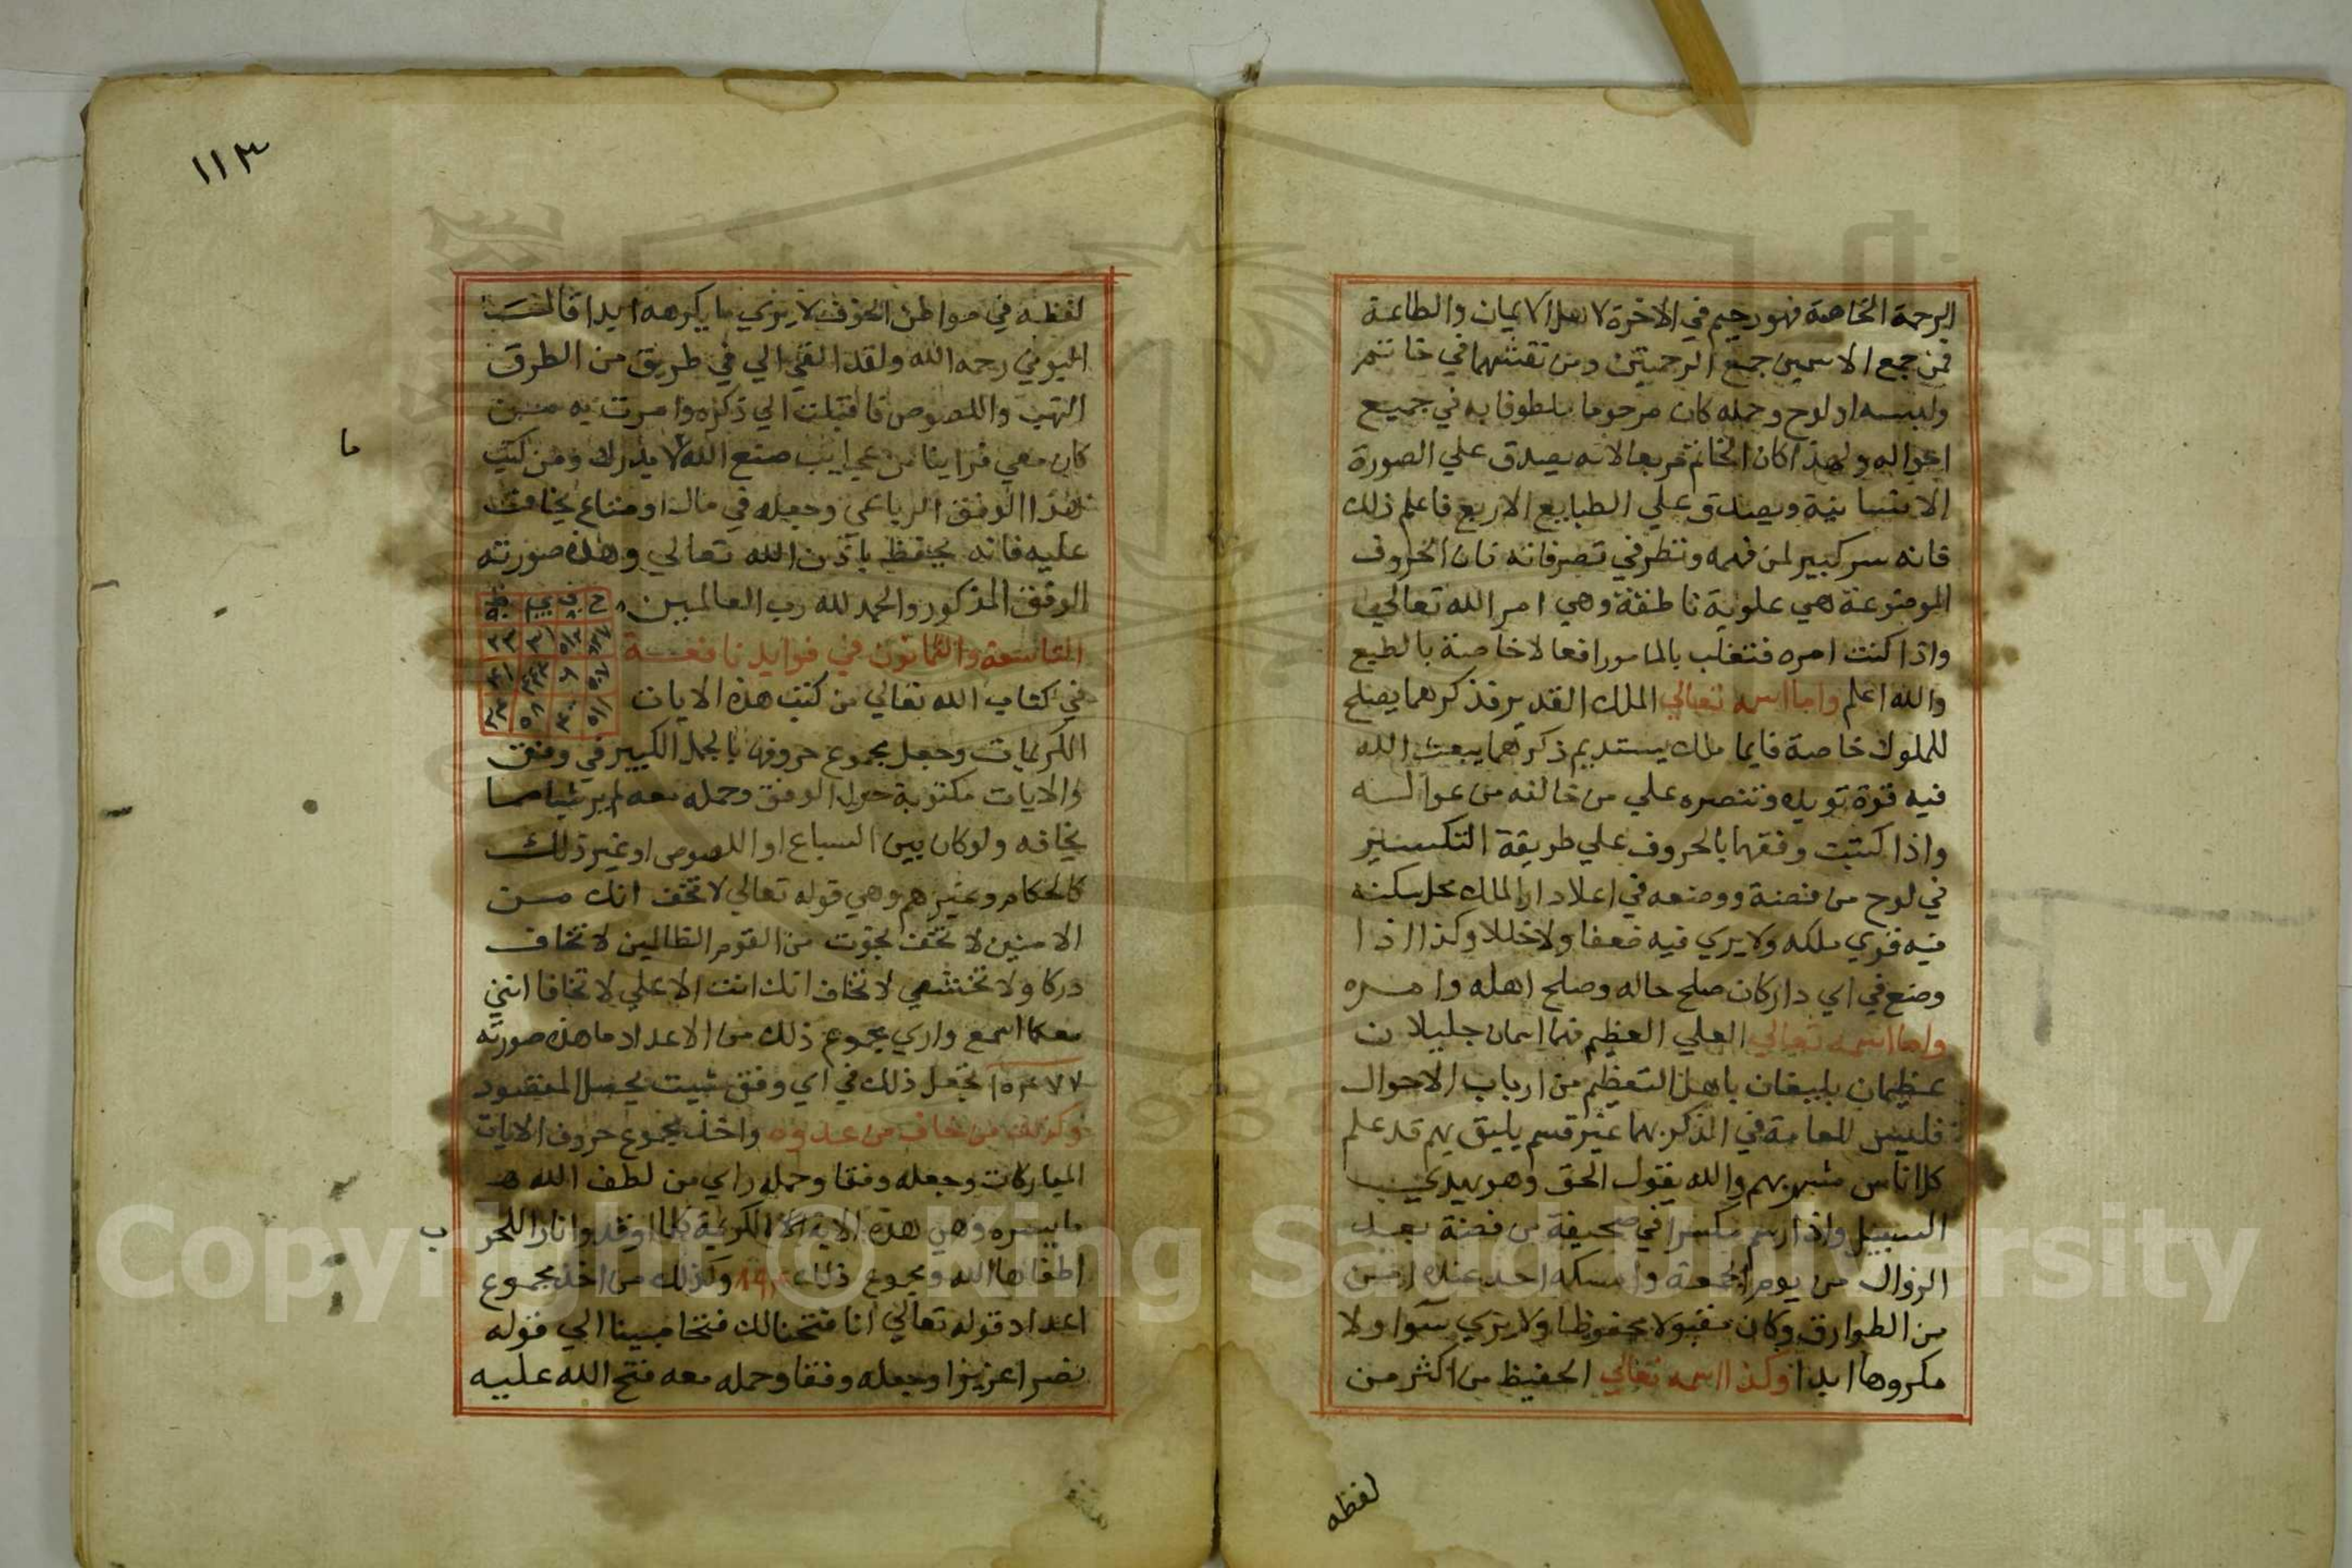 الرحمة الخاصة فهو رحيم في الاخرة لاهل الايمان والطاعة
فمن جمع الاسمين جمع الرحمتين ومن نقشهما في خاتم
ولبسه او لوح وحمله كان مرحوما ملطوفا به في جميع
احواله ولهذا كان الخاتم مربعا لانه يصدق علي الصورة
الانسانية ويصدق علي الطبايع الاربع فاعلم ذلك
فانه سر كبير لمن فهمه ونظر في تصرفاته فان الحروف
الموضوعة هي علوية ناطقة وهي امر الله تعالي
واذا كنت امره فتغلب بالمامور افعالا خاصة بالطبع
والله اعلم واما اسمه تعالي الملك القدير فذكرهما يصلح
للملوك خاصة فايما ملك يستديم ذكرهما يبعث الله
فيه قوة تويده وتنصره علي من خالفه من عوالمه
واذا كتبت وفقهما بالحروف علي طريقة التكسير
في لوح من فضة ووضعه في اعلا دار الملك محل سكنه
فيه قوي ملكه ولا يري فيه ضعفا ولا خللا وكذا اذا
وضع في اي دار كان صلح حاله وصلح اهله وامره
واما اسمه تعالي العلي العظيم فهما اسمان جليلان
عظيمان يليقان باهل التعظيم من ارباب الاحوال
فليس للعامة في الذكر بهما غير قسم يليق بهم قد علم
كل اناس مشربهم والله يقول الحق وهو يهدي
السبيل واذا رسم مكسرا في صحيفة من فضة بعد
الزوال من يوم الجمعة وامسكه احد عنده امن
من الطوارق وكان مقبولا محفوظا ولا يري سوا ولا
مكروها ابدا وكذا اسمه تعالي الحفيظ من اكثر من
لفظه
١١٣
لفظه في مواطن الخوف لا يري ما يكرهه ابدا قال
البوني رحمه الله ولقد القي الي في طريق من الطرق
النهب واللصوص فاقبلت الي ذكره وامرت به من
كان معي فراينا من عجايب صنع الله لا يدرك ومن كتب
ما
هذا الوفق الرباعي وجعله في مال او متاع يخاف
عليه فانه يحفظ باذن الله تعالي وهذه صورته
الوفق المذكور والحمد لله رب العالمين
التاسعة والثمانون في فوايد نافعة
في كتاب الله تعالي من كتب هذه الايات
الكريمات وجعل مجموع حروفها بالجمل الكبير في وفق
والايات مكتوبة حول الوفق وحمله معه لم ير شيا مما
يخافه ولو كان بين السباع او اللصوص او غير ذلك
كالحكام وغيرهم وهي قوله تعالي لا تخف انك من
الامنين لا تخف نجوت من القوم الظالمين لا تخاف
دركا ولا تخشي لا تخف انك انت الاعلي لا تخافا انني
معكما اسمع واري مجموع ذلك من الاعداد ما هذه صورته
تجعل ذلك في اي وفق شيت يحصل المقصود
وكذلك من خاف من عدوه واخذ مجموع حروف الايات
المباركات وجعله وفقا وحمله راي من لطف الله
ما يسره وهي هذه الاية الكريمة كلما اوقدوا نارا للحر
ب
اطفاها الله ومجموع ذلك وكذلك من اخذ مجموع
اعداد قوله تعالي انا فتحنا لك فتحا مبينا الي قوله
نصرا عزيزا وجعله وفقا وحمله معه فتح الله عليه
Copyright © King Saud University
1957